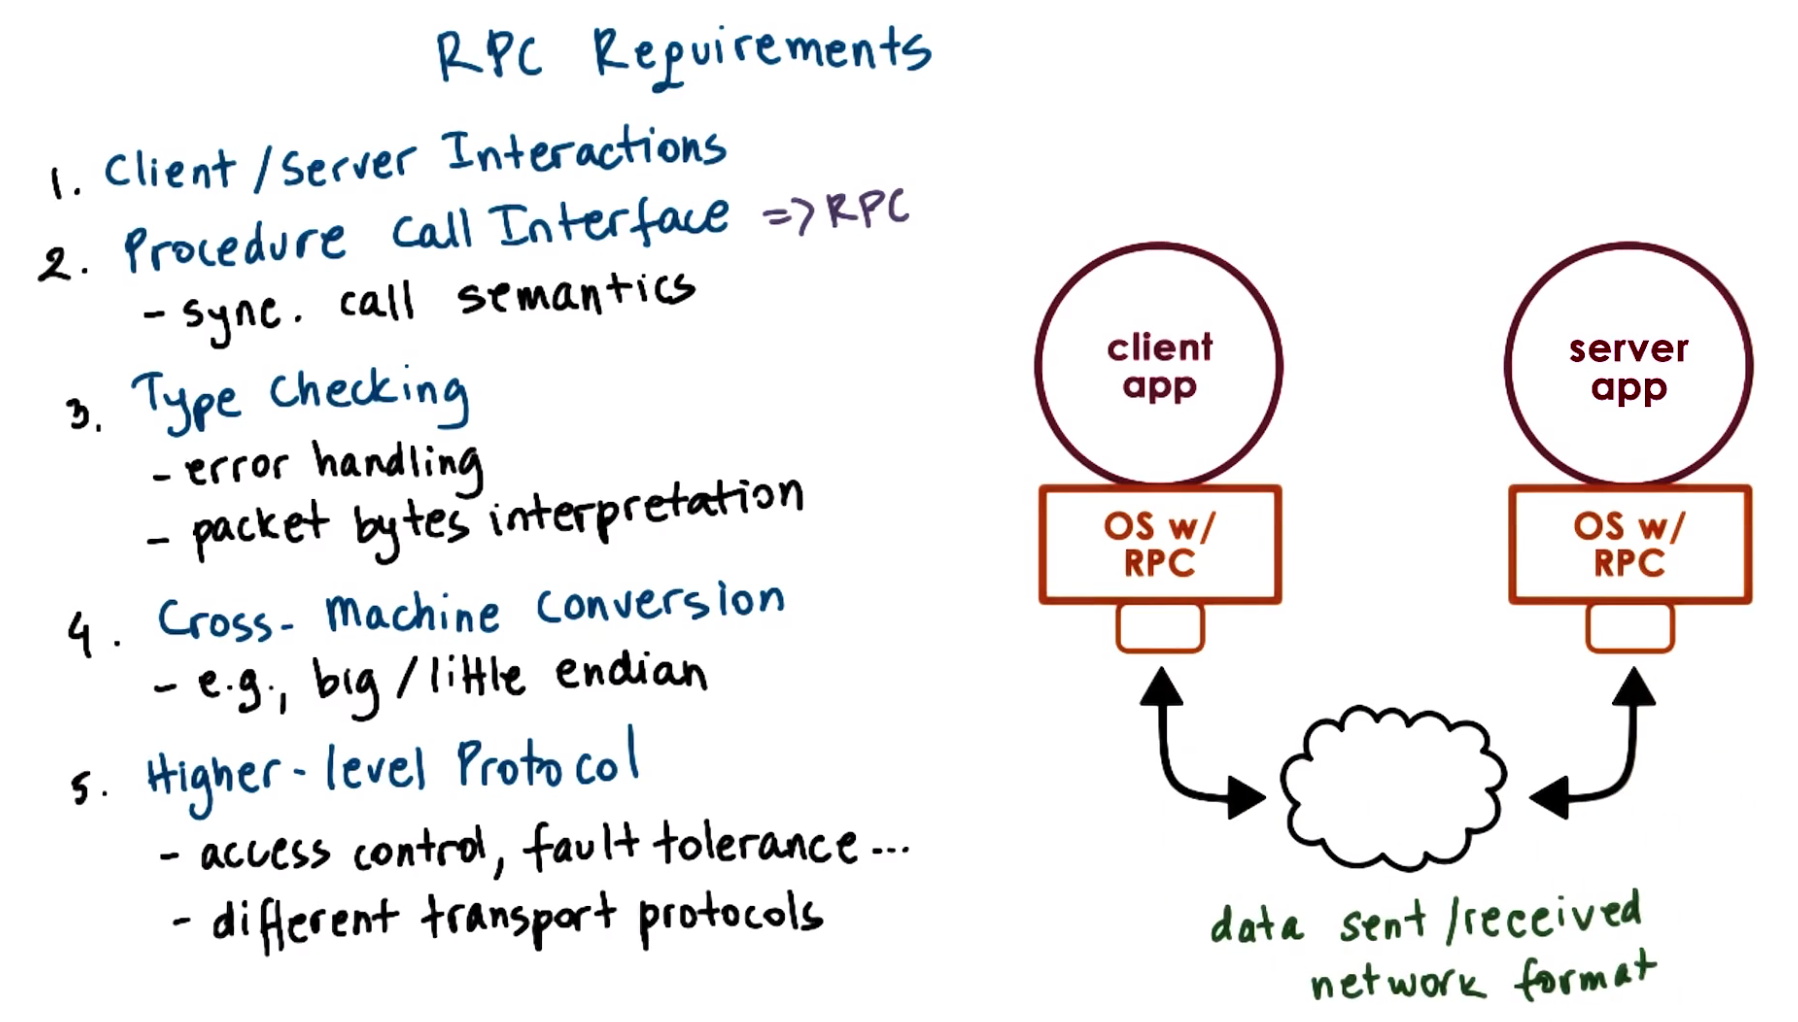 RPC Requirements
1. Client/Server Interactions
2. Procedure Call Interface => RPC
- sync. call semantics
3. Type Checking
- error handling
- packet bytes interpretation
4. Cross-Machine Conversion
- e.g., big/little endian
5. Higher-level Protocol
- access control, fault tolerance...
- different transport protocols
client
app
OS w/
RPC
server
app
OS w/
RPC
data sent/received
network format